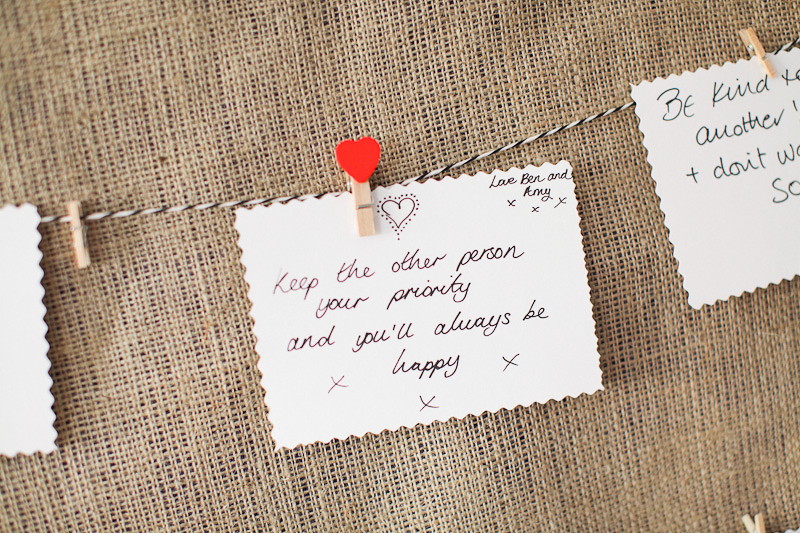 Love Ben and
Amy
x x x
Keep the other person
your priority
and you'll always be
happy
x x x
Be kind to
another
+ don't
So